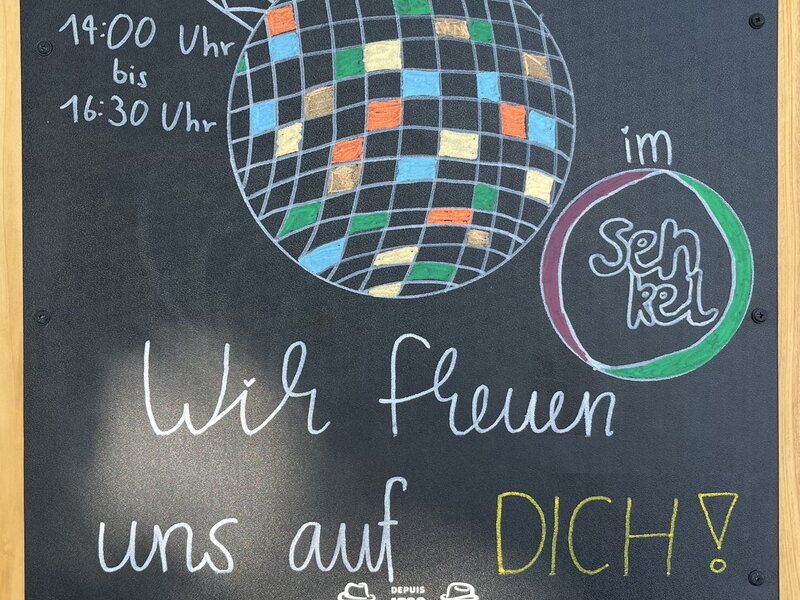 14:00 Uhr
bis
16:30 Uhr
im
Sen
kel
Wir freuen
uns auf DICH!
DEPUIS